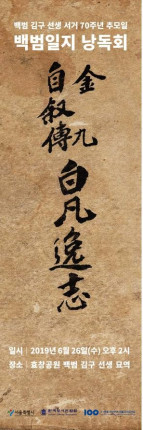 백범 김구 선생 서거 70주년 추모일
백범일지 낭독회
金九
自叙傳
白凡逸志
일시 | 2019년 6월 26일(수) 오후 2시
장소 | 효창공원 백범 김구 선생 묘역
서울특별시
100